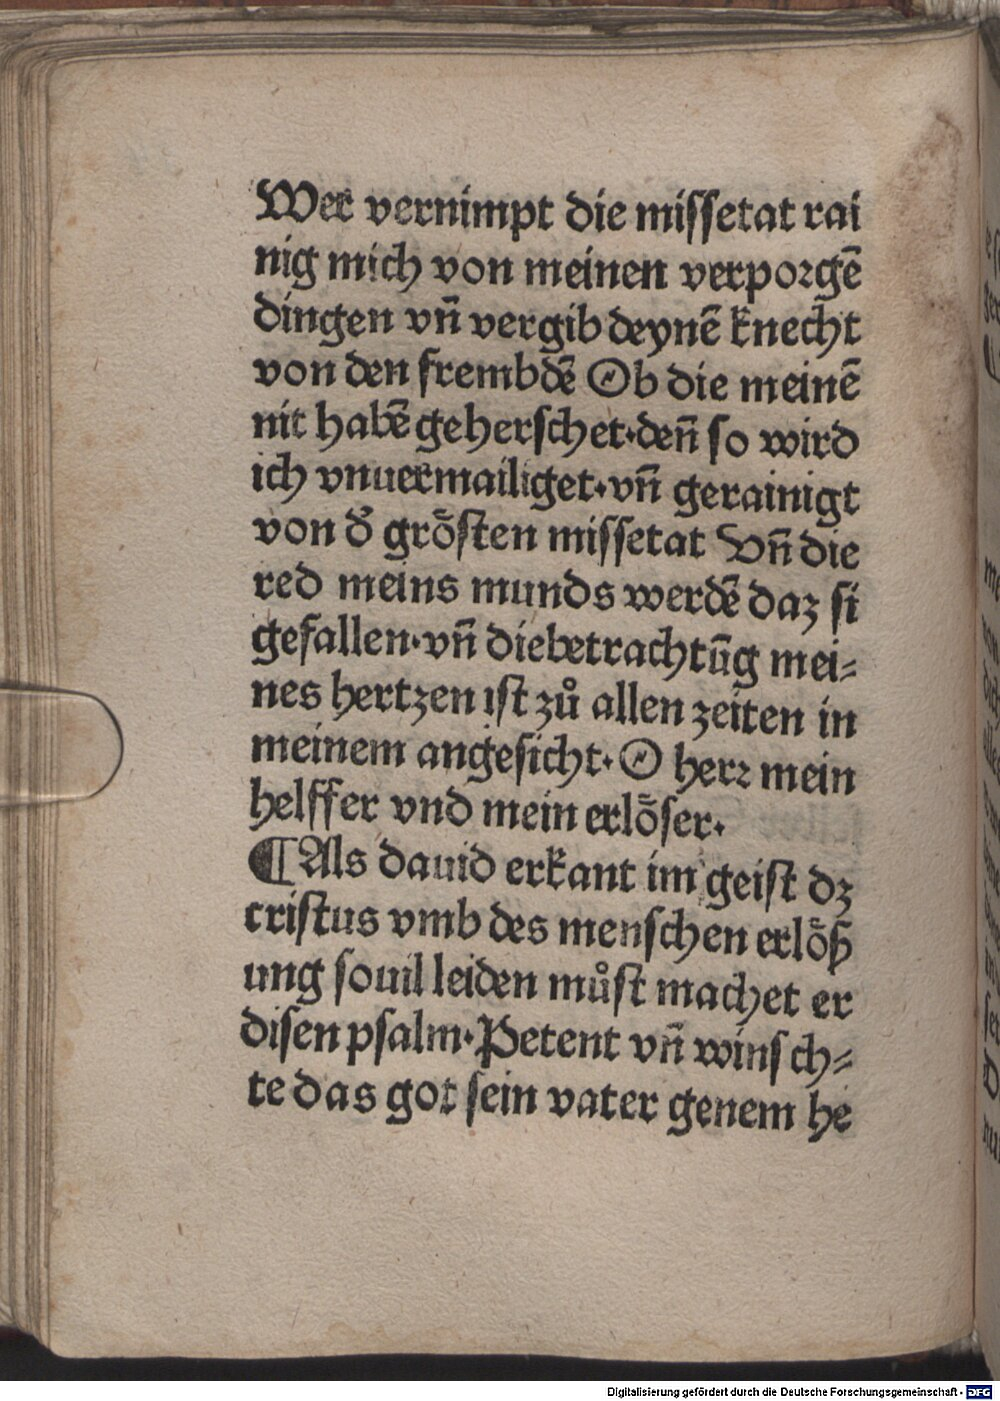 Wer vernimpt die missetat rai
nig mich von meinen verporgē
dingen vn̄ vergib deynē knecht
von den frembdē Ob die meinē
nit habē geherschet·den̄ so wird
ich vnuermailiget·vn̄ gerainigt
von d̕ grȫsten missetat Vn̄ die
red meins munds werdē daz si
gefallen·vn̄ diebetrachtūg mei⸗
nes hertzen ist zů allen zeiten in
meinem angesicht· O herr mein
helffer vnd mein erlöser·
¶Als dauid erkant im geist dz
cristus vmb des menschen erlöß
ung souil leiden můst machet er
disen psalm·Petent vn̄ winsch⸗
te das got sein vater genem he
Digitalisierung gefördert durch die Deutsche Forschungsgemeinschaft - DFG